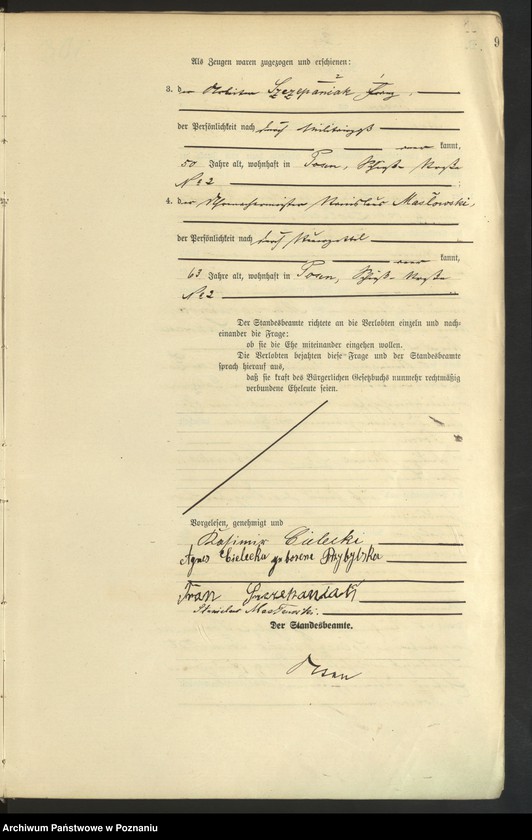 9
Als Zeugen waren zugezogen und erschienen:
3. der Arbeiter Szczepaniak Franz,
der Persönlichkeit nach durch Militärpaß
kannt,
50 Jahre alt, wohnhaft in Posen,
No 2
4. der Schuhmachermeister Stanislaus Masłowski,
der Persönlichkeit nach durch
kannt,
63 Jahre alt, wohnhaft in Posen,
No 2
Der Standesbeamte richtete an die Verlobten einzeln und nach-
einander die Frage:
ob sie die Ehe miteinander eingehen wollen.
Die Verlobten bejahten diese Frage und der Standesbeamte
sprach hierauf aus,
daß sie kraft des Bürgerlichen Gesetzbuchs nunmehr rechtmäßig
verbundene Eheleute seien.
Vorgelesen, genehmigt und
Kasimir Cielecki
Agnes Cielecka geborene Przybylska
Fran Szczepaniak
Stanislaus Masłowski.
Der Standesbeamte.
Archiwum Państwowe w Poznaniu